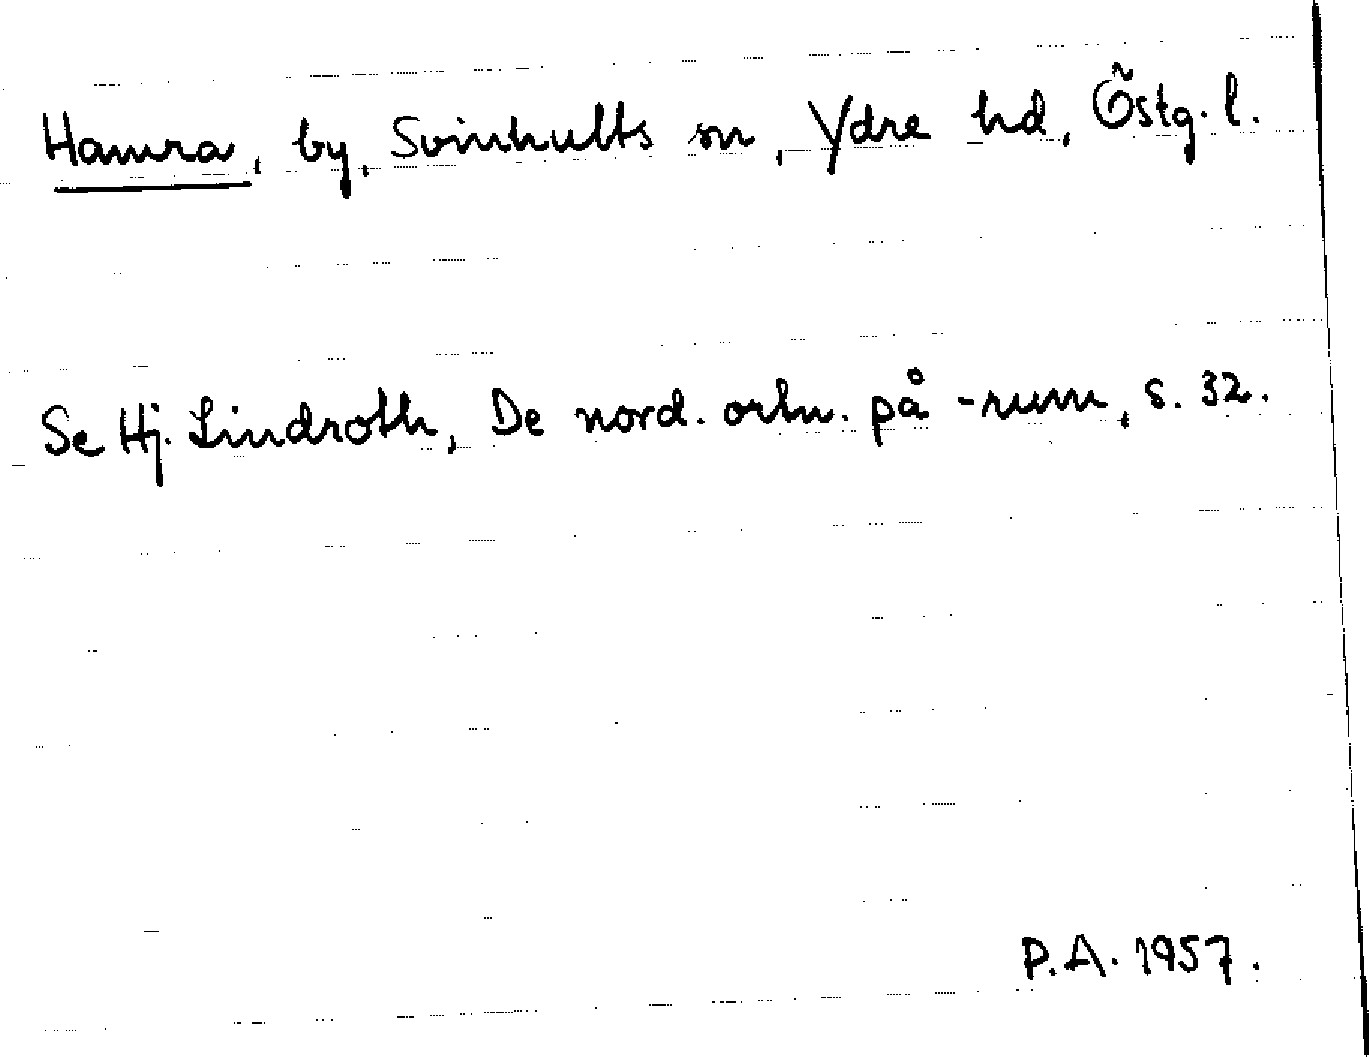 Hamra, by, Svinhults sn, Ydre hd, Östg. l.
Se Hj. Lindroth, De nord. ortn. på -rum, s. 32.
P.A. 1957.